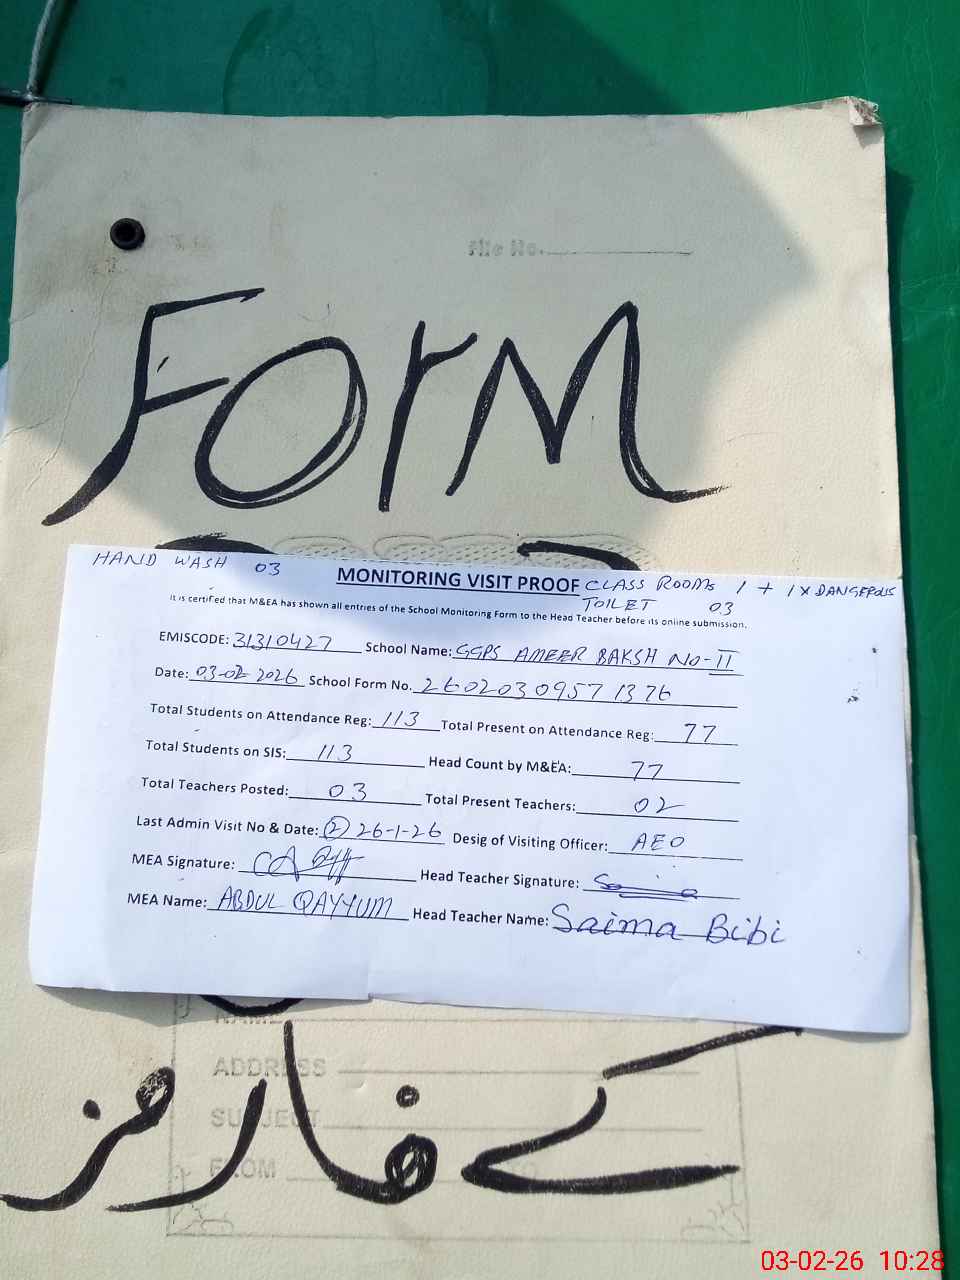 File No.
Form
HAND WASH 03
MONITORING VISIT PROOF
CLASS ROOMS 1 + 1 X DANGEROUS
TOILET 03
It is certified that M&EA has shown all entries of the School Monitoring Form to the Head Teacher before its online submission.
EMISCODE: 31310427 School Name: GGPS AMEER BAKSH NO-II
Date: 03-02-2026 School Form No. 26020309571376
Total Students on Attendance Reg: 113 Total Present on Attendance Reg: 77
Total Students on SIS: 113 Head Count by M&EA: 77
Total Teachers Posted: 03 Total Present Teachers: 02
Last Admin Visit No & Date: (2) 26-1-26 Desig of Visiting Officer: AEO
MEA Signature: Head Teacher Signature:
MEA Name: ABDUL QAYYUM Head Teacher Name: Saima Bibi
NAME
ADDRESS
SUBJECT
FROM TO
کے فارمز
03-02-26 10:28